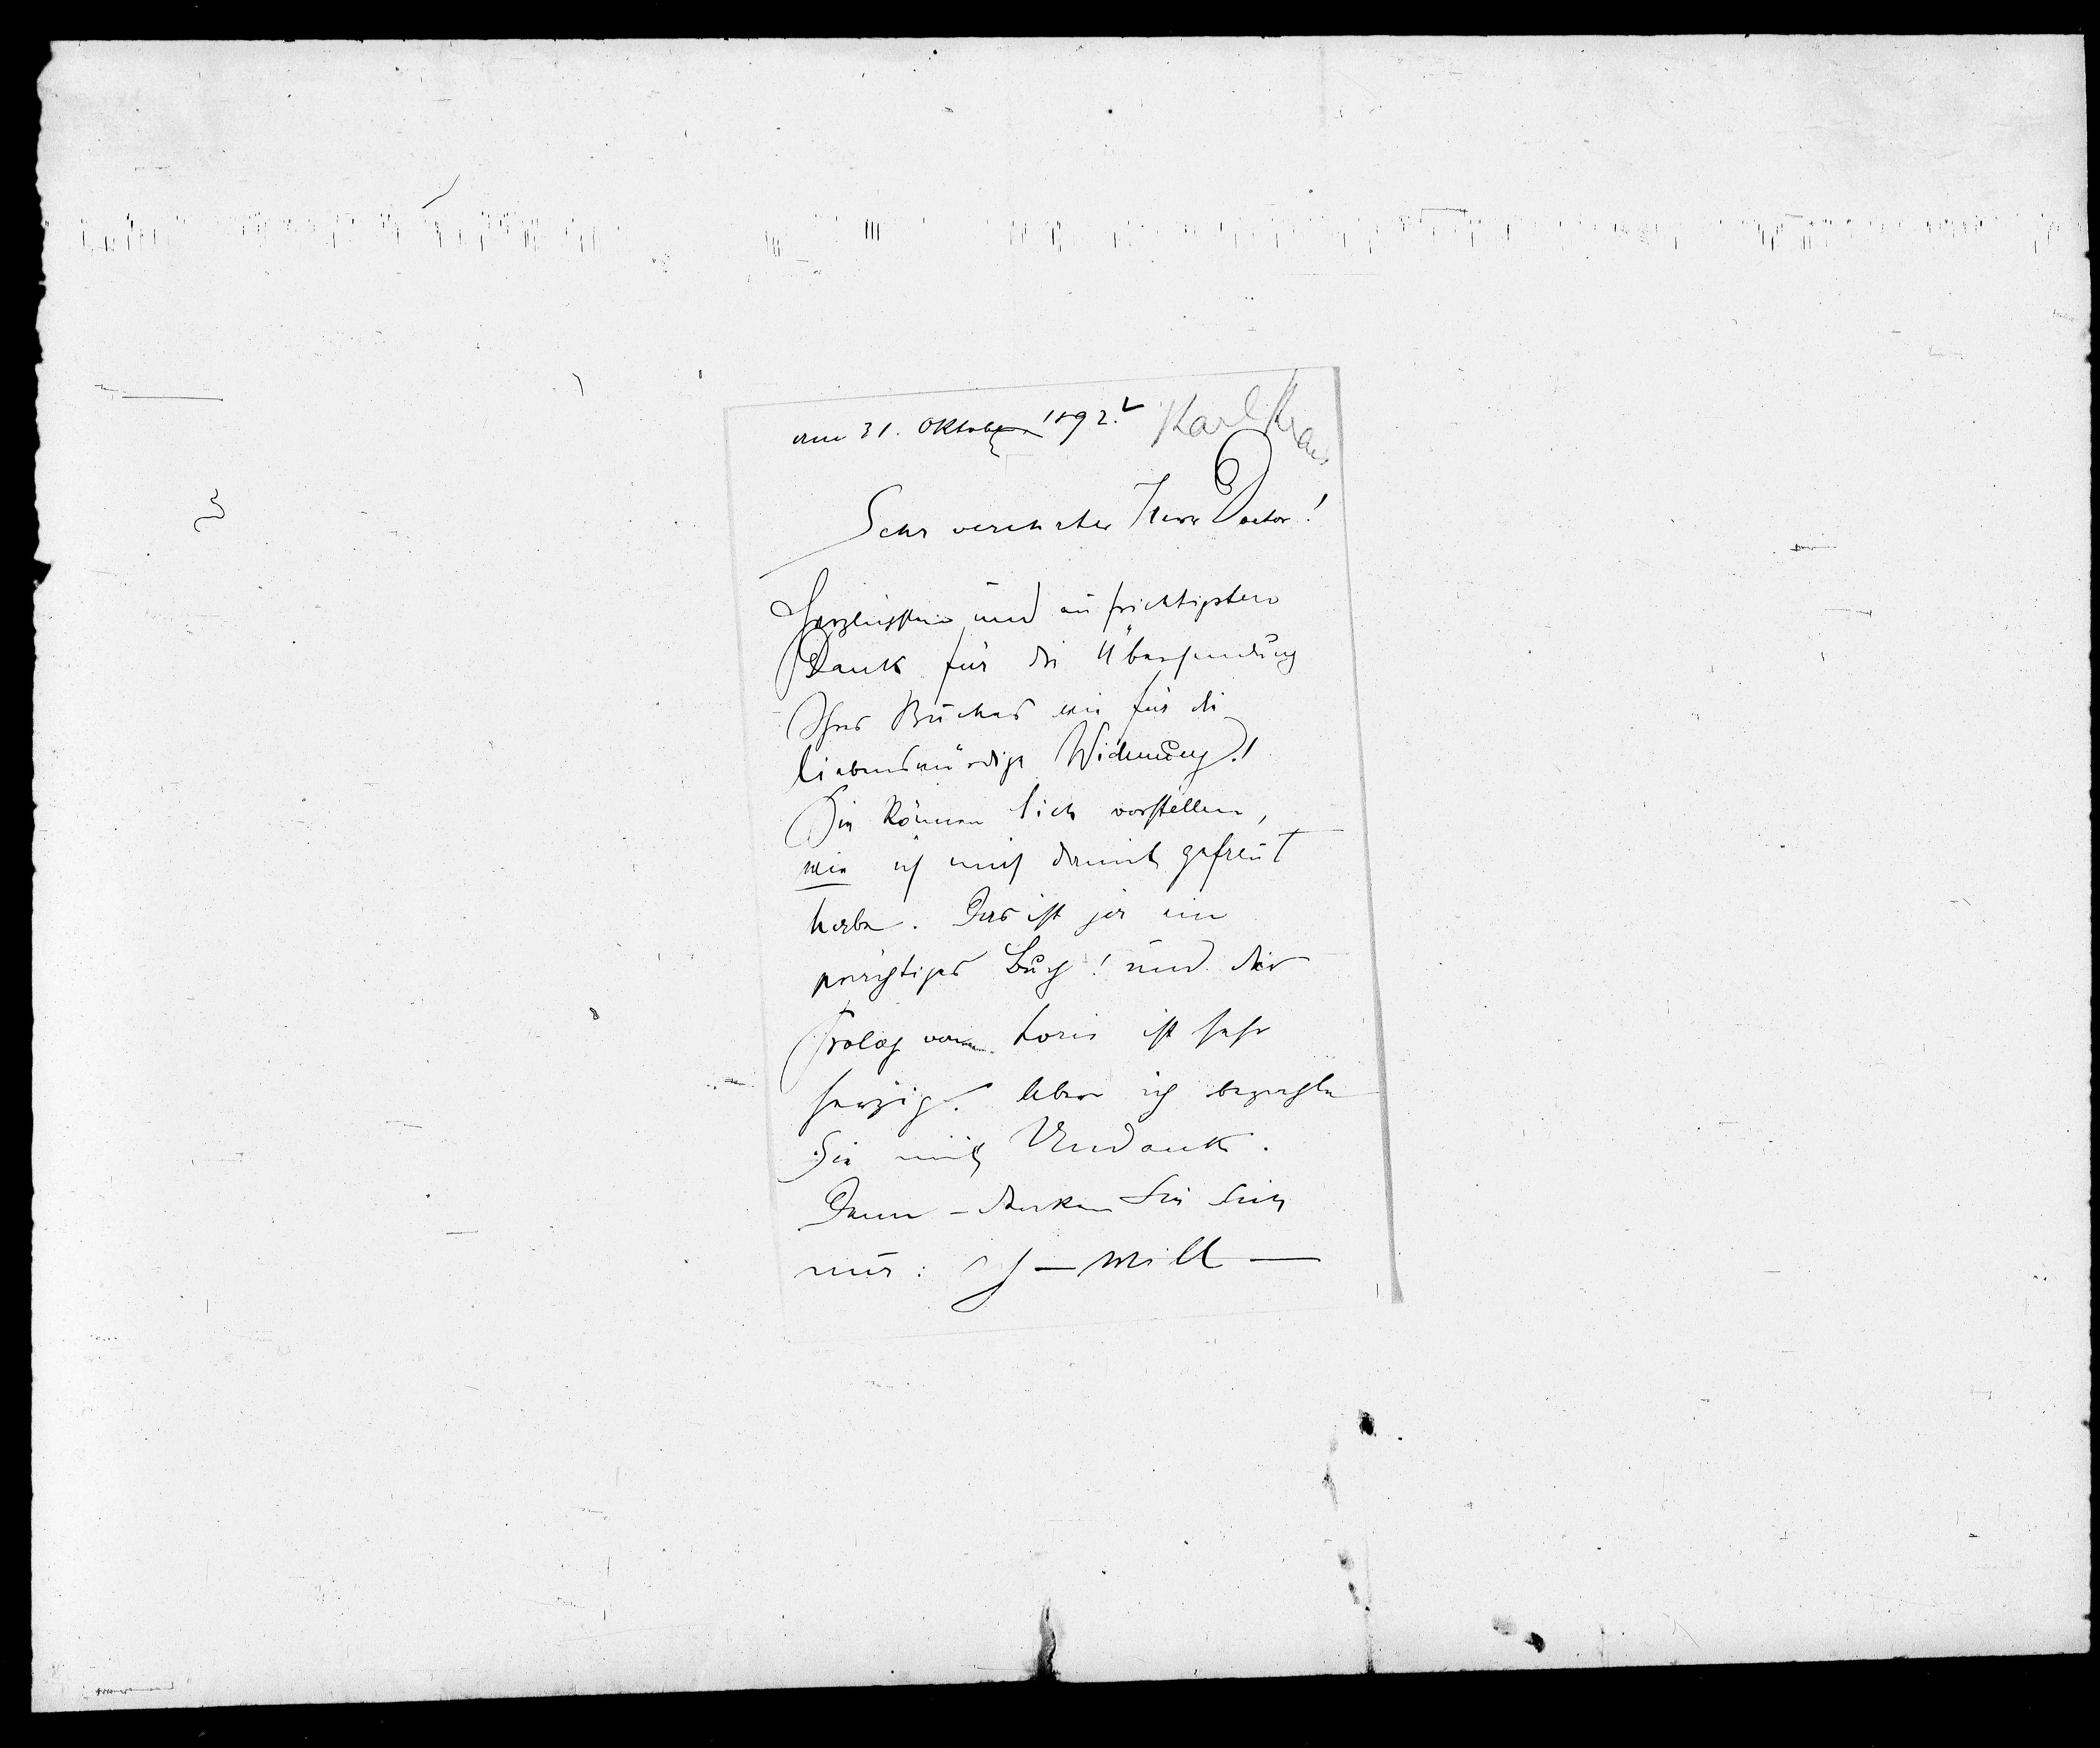 am 31. Oktober 1892.
Karl Kraus
Sehr verehrter Herr Doctor!
Herzlichsten und aufrichtigsten
Dank für die Übersendung
Ihres Buches wie für die
liebenswürdige Widmung!
Sie können sich vorstellen,
wie ich mich damit gefreut
habe. Das ist ja ein
prächtiges Buch! und der
Prolog von Loris ist sehr
herzig. Aber ich bezahle
Sie mit Undank.
Denn – denken Sie sich
nur: ich – will –